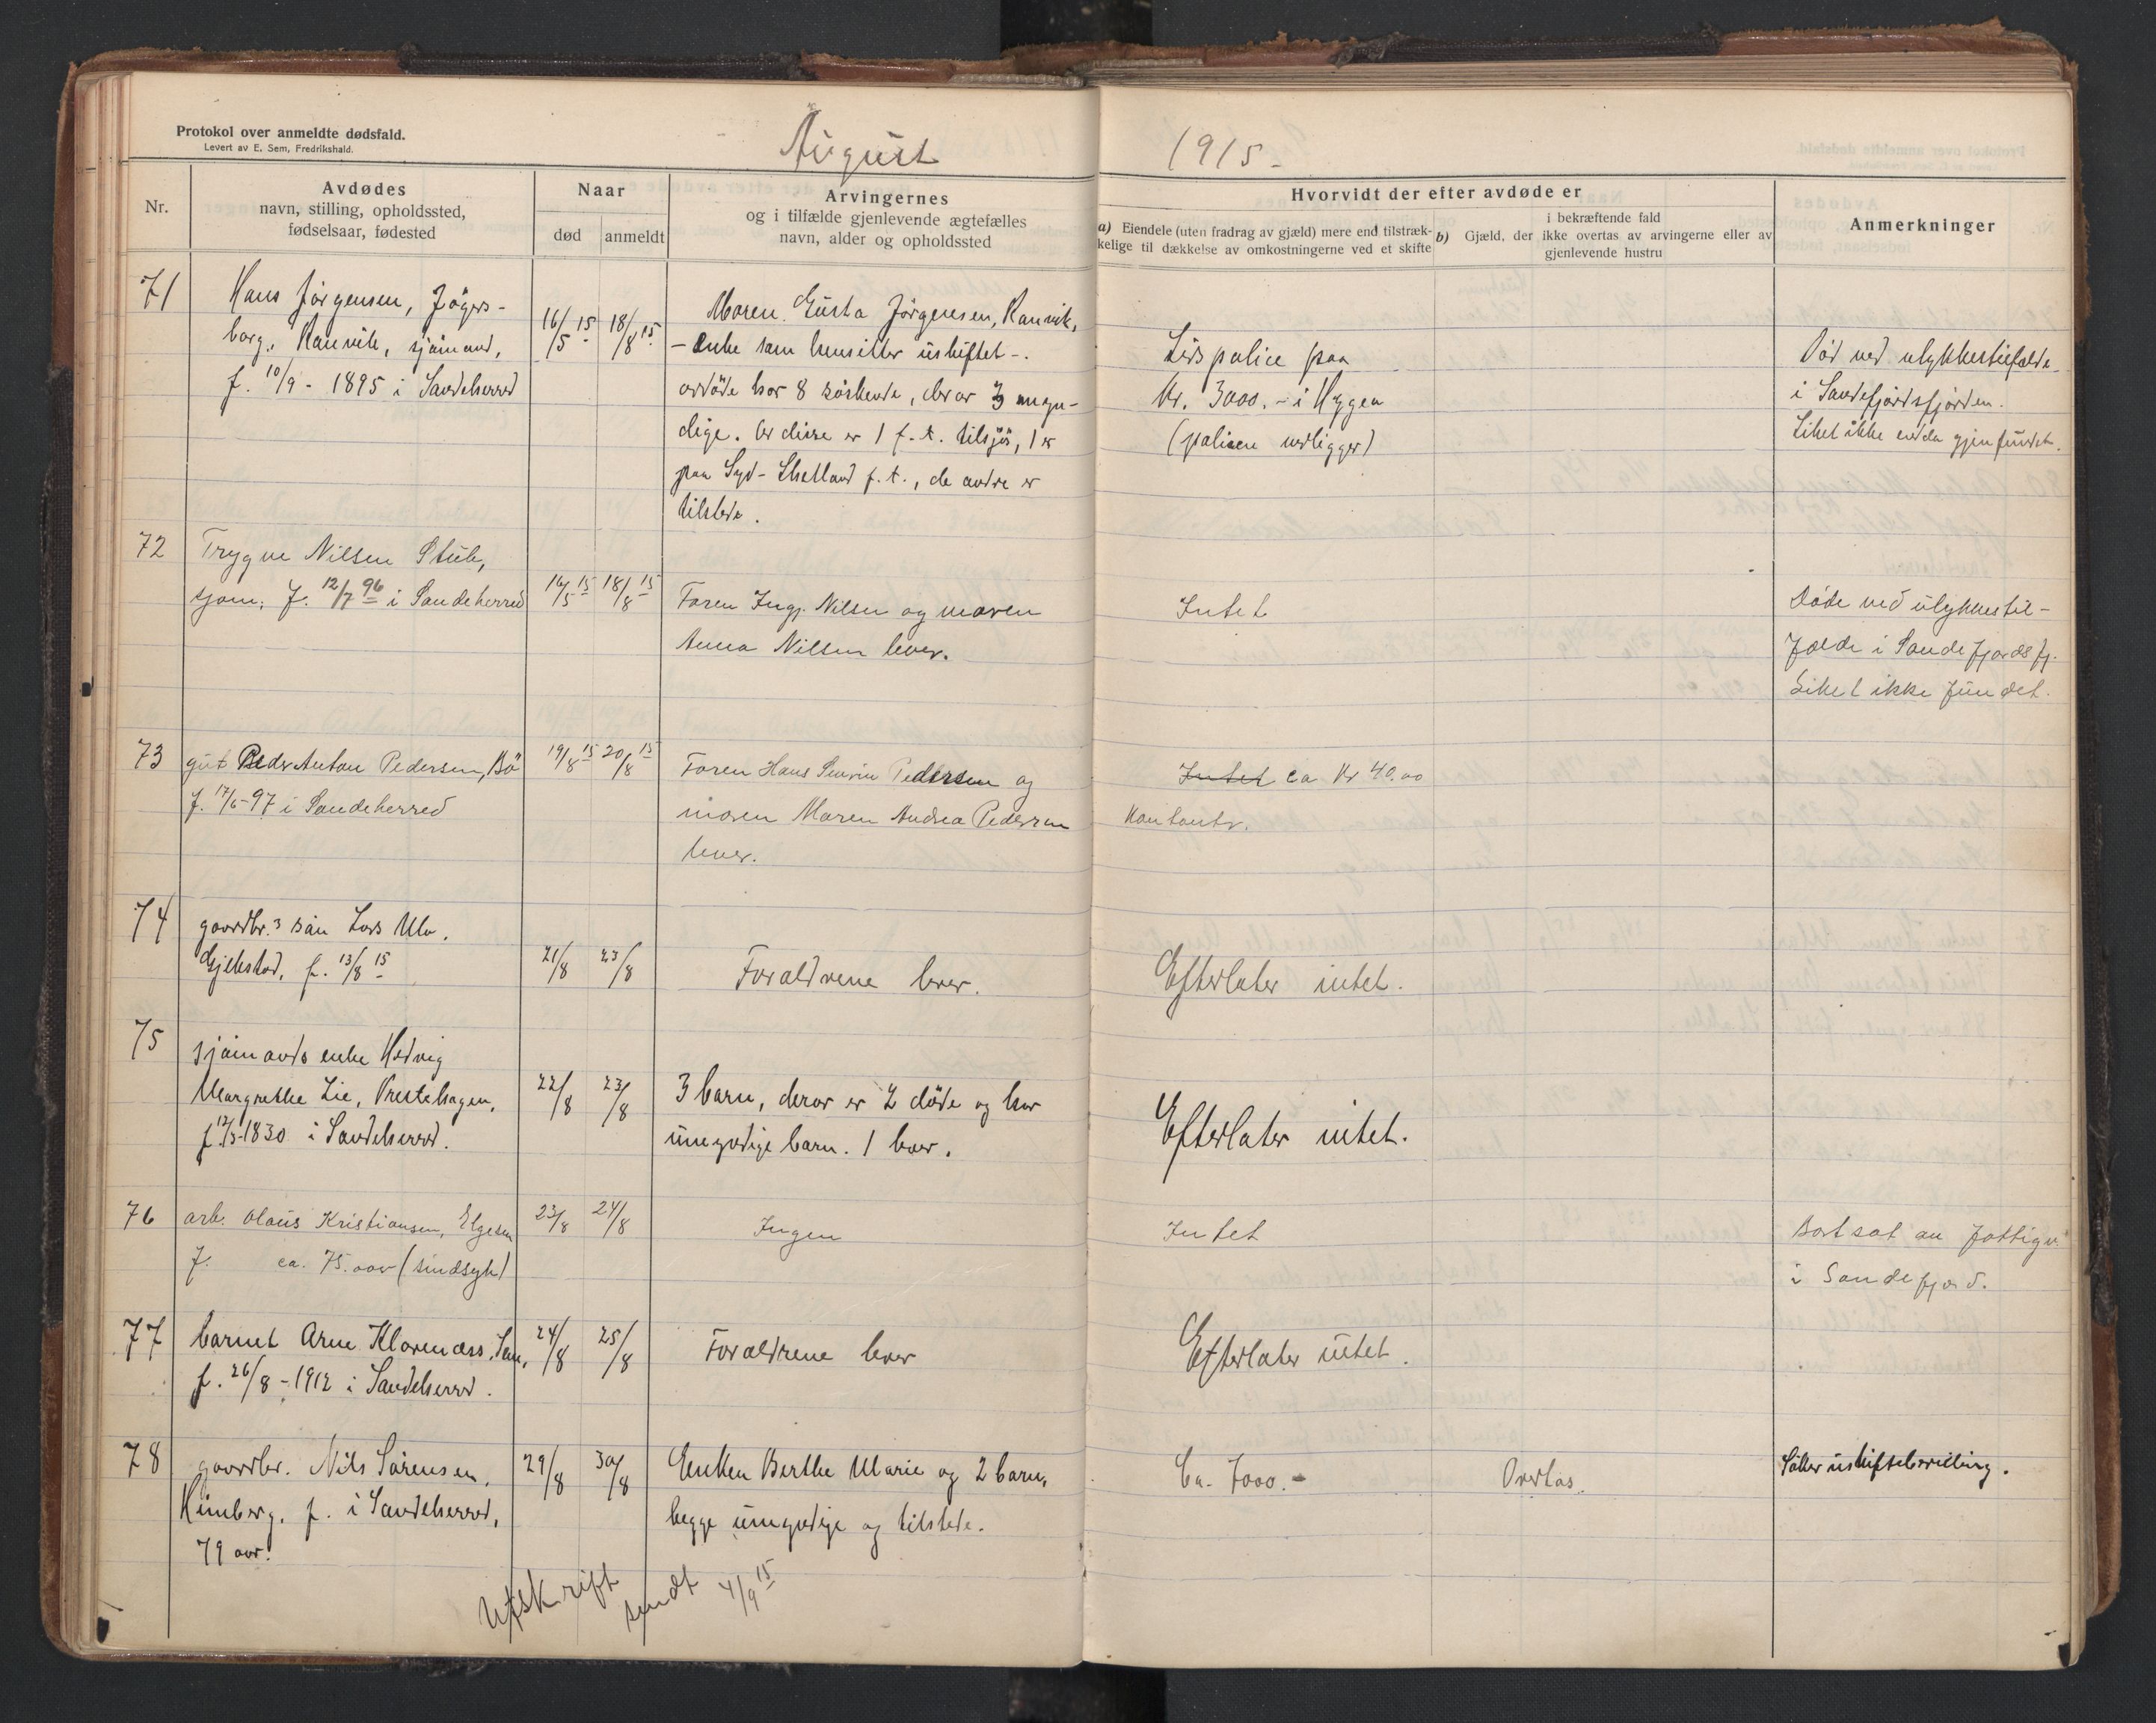 Protokol over anmeldte dødsfald.
Levert av E. Sem, Fredrikshald.
August
1915-
Nr.
Avdødes
navn, stilling, opholdssted,
fødselsaar, fødested
Naar
død
anmeldt
Arvingernes
og i tilfælde gjenlevende ægtefælles
navn, alder og opholdssted
Hvorvidt der efter avdøde er
a) Eiendele (uten fradrag av gjæld) mere end tilstræk-
kelige til dækkelse av omkostningerne ved et skifte
b) Gjæld, der
i bekræftende fald
ikke overtas av arvingerne eller av
gjenlevende hustru
Anmerkninger
71
Hans Jørgensen, Jägers-
borg, Ranvik, sjømand,
f. 10/9 - 1895 i Sandeherred
16/5 15
18/8 15
Moren Gusta Jørgensen, Ranvik,
- enke som hensitter uskiftet -.
avdøde har 8 søskende, derav 3 myn-
dige. Av disse er 1 f.t. tilsjøs, 1 er
paa Syd-Shetland f.t., de andre er
tilstede.
Livspolice paa
Kr. 3000.- i Hygea
(policen vedligger)
Død ved ulykkestilfælde
i Sandefjordsfjorden.
Liket ikke endda gjenfundet.
72
Trygve Nilsen Stub,
sjøm. f. 12/7 96 i Sandeherred
16/5 15
18/8 15
Faren Ingj. Nilsen og moren
Anna Nilsen lever.
Intet
Døde ved ulykkestil-
fælde i Sandefjordsfj.
Liket ikke fundet.
73
gut Peder Anton Pedersen, Bö
f. 17/6-97 i Sandeherred
19/8 15
20/8 15
Faren Hans Severin Pedersen og
moren Maren Andrea Pedersen
lever.
Intet ca Kr 40.00
kontanter.
74
gaardbr.s søn Lars Ula.
Gjekstad, f. 13/8 15
21/8
23/8
Forældrene lever.
Efterlater intet.
75
sjømands enke Hedvig
Margrethe Lie, Prestehagen,
f. 12/3-1830 i Sandeherred.
22/8
23/8
3 barn, derav er 2 døde og har
umyndige barn. 1 lever.
Efterlater intet.
76
arb. Olaus Kristiansen, Elgesem
f. ca. 75. aar (sindsyk)
23/8
24/8
Ingen
Intet
Bortsat av fattigv.
i Sandefjord.
77
barnet Arne Klavenæss,
f. 26/8 - 1912 i Sandeherred.
24/8
25/8
Forældrene lever
Efterlater intet.
78
gaardbr. Nils Sørensen,
Himberg, f. i Sandeherred,
79 aar.
29/8
30/8
Enken Berthe Marie og 2 barn,
begge umyndige og tilstede.
Ca. 7000.-
Overtas.
Søker uskiftebevilling.
Utskrift sendt 4/9 15